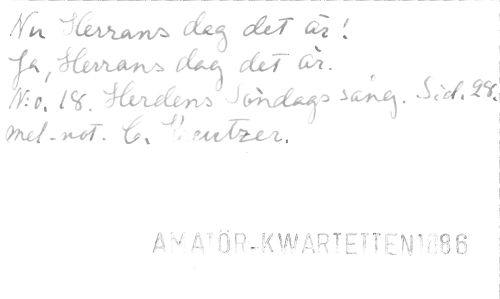 Nu Herrans dag det är!
Ja, Herrans dag det är.
N:o. 18. Herdens Söndagssång. Sid. 28.
mel-not. C. Kreutzer.
AMATÖR-KWARTETTEN 1886